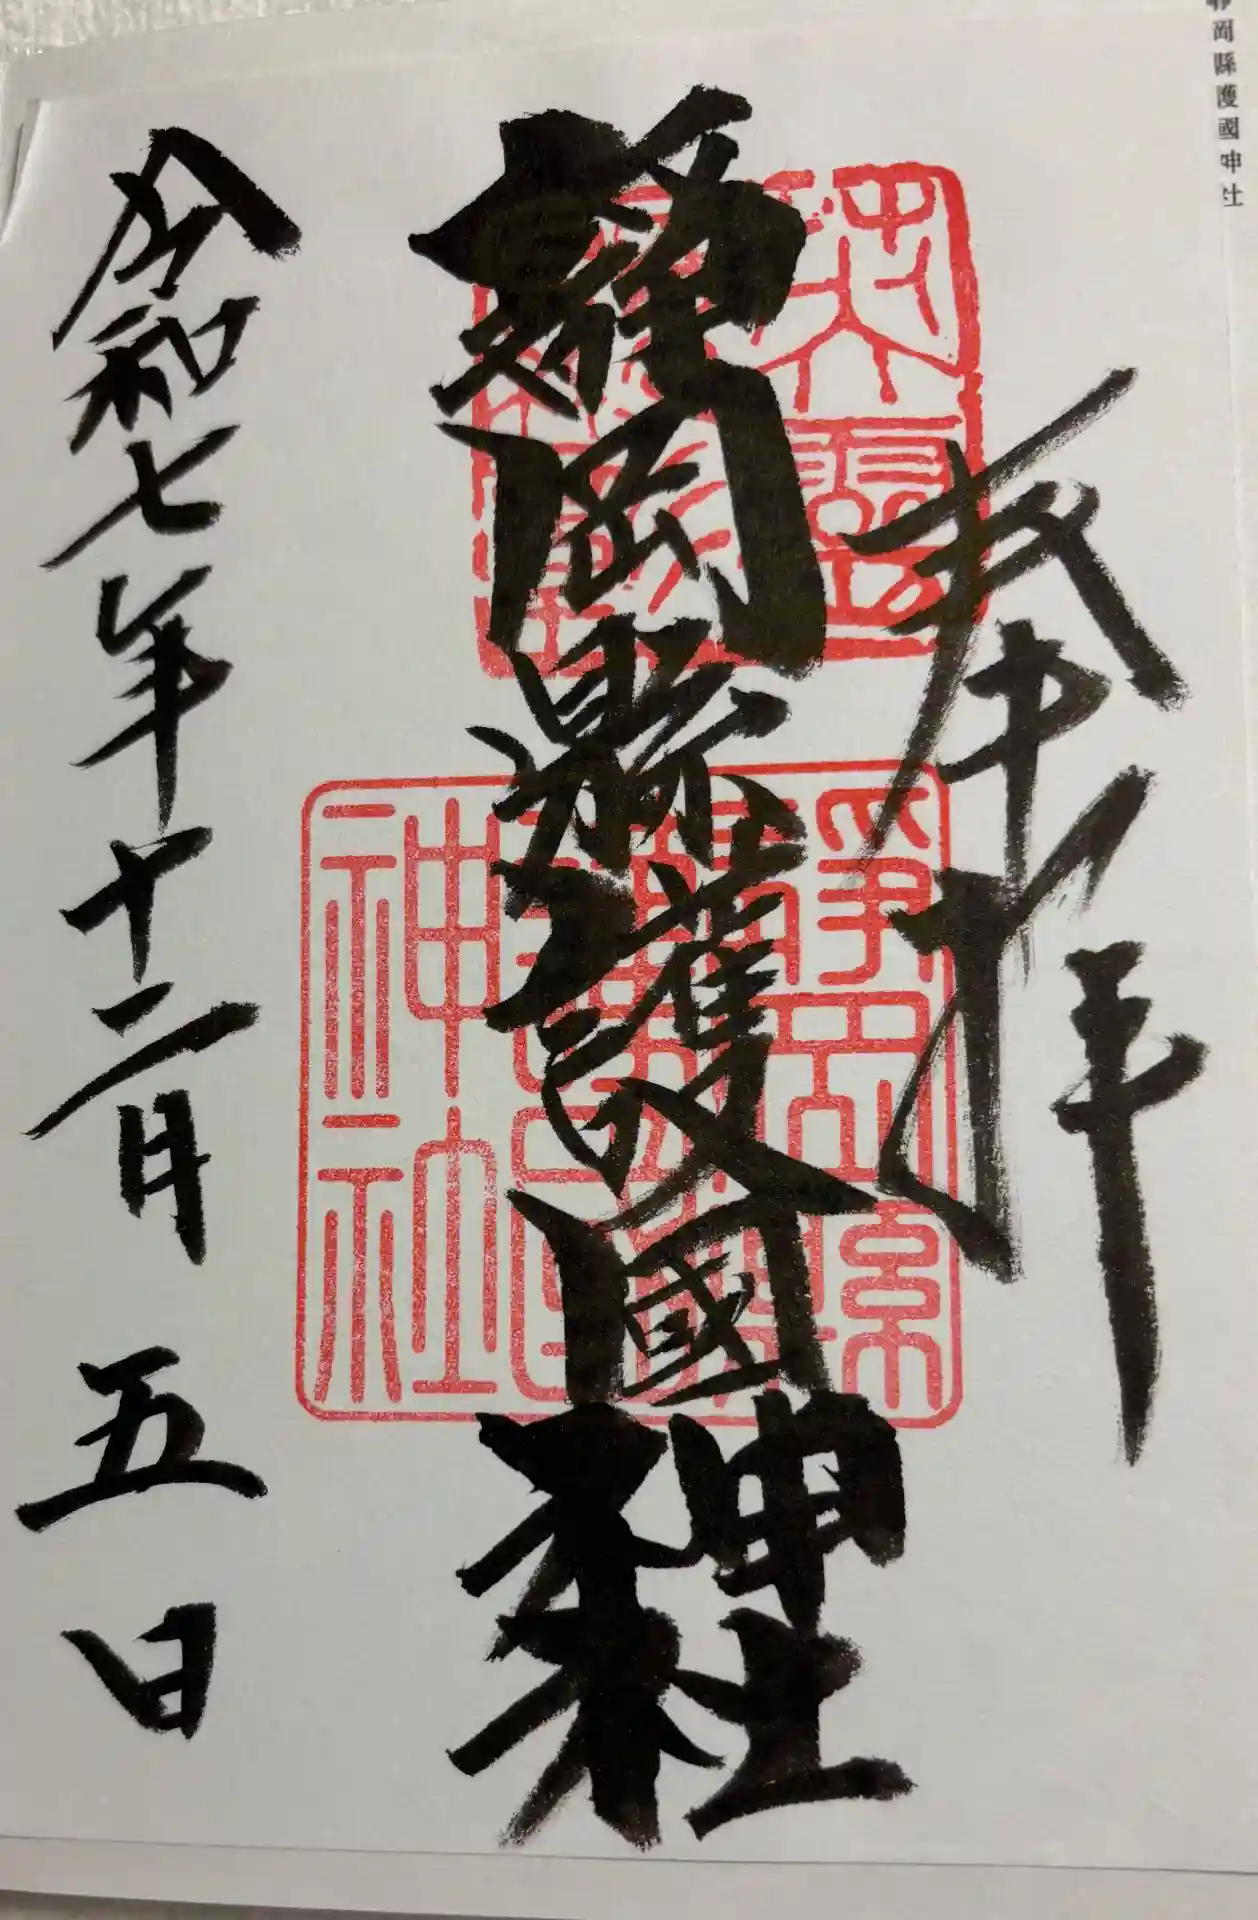 靜岡縣護國神社
奉拝
靜岡縣護國神社
靜岡縣護國神社
令和七年十二月五日